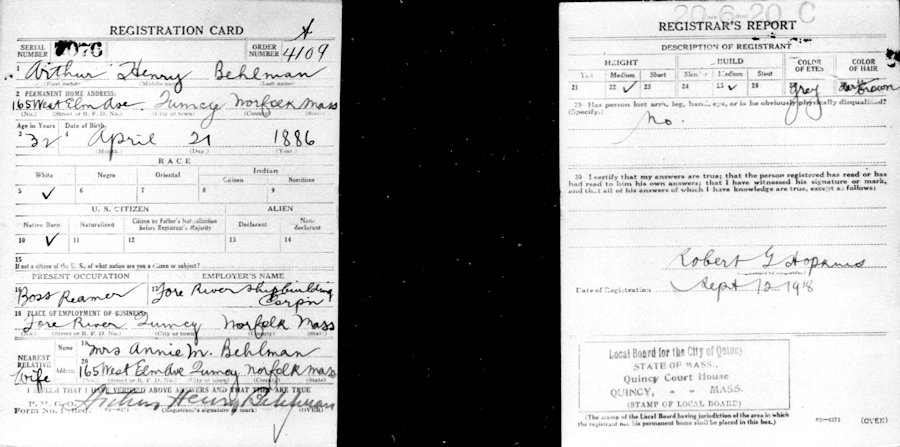 REGISTRATION CARD
SERIAL NUMBER ORDER NUMBER 4109
1 Arthur Henry Behlman
(First name) (Middle name) (Last name)
2 PERMANENT HOME ADDRESS:
165 West Elm Ave. Quincy Norfolk Mass
(No.) (Street or R. F. D. No.) (City or town) (County) (State)
Age in Years Date of Birth
3 32 4 April 21 1886
(Month.) (Day.) (Year.)
RACE
White Negro Oriental Indian
Citizen Noncitizen
5 ✓ 6 7 8 9
U. S. CITIZEN ALIEN
Native Born Naturalized Citizen by Father's Naturalization Before Registrant's Majority Declarant Non-declarant
10 ✓ 11 12 13 14
15
If not a citizen of the U. S., of what nation are you a citizen or subject?
PRESENT OCCUPATION EMPLOYER'S NAME
16 Boss Reamer 17 Fore River Shipbuilding Corp'n
18 PLACE OF EMPLOYMENT OR BUSINESS:
Fore River Quincy Norfolk Mass
(No.) (Street or R. F. D. No.) (City or town) (County) (State)
NEAREST RELATIVE Name 19 Mrs Annie M. Behlman
Wife Address 20 165 West Elm Ave Quincy Norfolk Mass
(No.) (Street or R. F. D. No.) (City or town) (County) (State)
I AFFIRM THAT I HAVE VERIFIED ABOVE ANSWERS AND THAT THEY ARE TRUE
Arthur Henry Behlman
P. M. G. O. Form No. 1 (Red) 03—6171 (Registrant's signature or mark) (OVER)
20-6-20 C
REGISTRAR'S REPORT
DESCRIPTION OF REGISTRANT
HEIGHT BUILD COLOR OF EYES COLOR OF HAIR
Tall Medium Short Slender Medium Stout
21 22 ✓ 23 24 25 ✓ 26 27 Grey Brown
29 Has person lost arm, leg, hand, eye, or is he obviously physically disqualified?
(Specify.) No.
30 I certify that my answers are true; that the person registered has read or has
had read to him his own answers; that I have witnessed his signature or mark,
and that all of his answers of which I have knowledge are true, except as follows:
Robert G Hopkins
Date of Registration Sept 12 1918
Local Board for the City of Quincy
STATE OF MASS.
Quincy Court House
QUINCY, - - MASS.
(STAMP OF LOCAL BOARD)
(The stamp of the Local Board having jurisdiction of the area in which
the registrant has his permanent home shall be placed in this box.)
03—6171 (OVER)